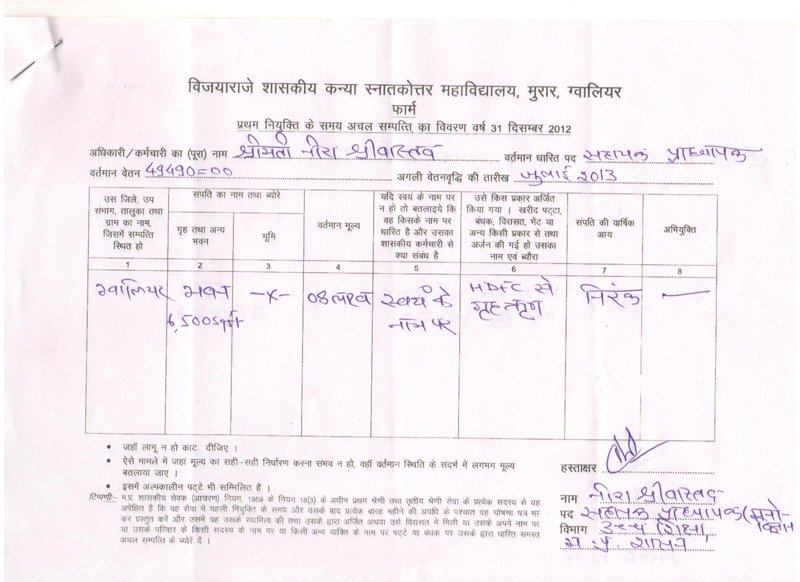 विजयाराजे शासकीय कन्या स्नातकोत्तर महाविद्यालय, मुरार, ग्वालियर
फार्म
प्रथम नियुक्ति के समय अचल सम्पत्ति का विवरण वर्ष 31 दिसम्बर 2012
अधिकारी / कर्मचारी का (पूरा) नाम श्रीमती नीरा श्रीवास्तव वर्तमान धारित पद सहायक प्राध्यापक
वर्तमान वेतन 49490=00 अगली वेतनवृद्धि की तारीख जुलाई 2013
उस जिले, उप संभाग, तालुका तथा ग्राम का नाम, जिसमें सम्पत्ति स्थित हो
संपति का नाम तथा ब्योरे
गृह तथा अन्य भवन
भूमि
वर्तमान मूल्य
यदि स्वयं के नाम पर न हो तो बतलाइये कि वह किसके नाम पर धारित है और उसका शासकीय कर्मचारी से क्या संबंध है
उसे किस प्रकार अर्जित किया गया । खरीद पट्टा, बंधक, विरासत, भेंट या अन्य किसी प्रकार से तथा अर्जन की गई हो उसका नाम एवं ब्यौरा
संपति की वार्षिक आय
अभियुक्ति
1 2 3 4 5 6 7 8
ग्वालियर भवन —x— 08 लाख स्वयं के HDFC से निरंक —
6,500 sqft नाम पर गृह ऋण
• जहाँ लागू न हो काट दीजिए ।
• ऐसे मामले में जहां मूल्य का सही-सही निर्धारण करना संभव न हो, वहाँ वर्तमान स्थिति के संदर्भ में लगभग मूल्य
बतलाया जाए ।
• इसमें अल्पकालीन पट्टे भी सम्मिलित हैं ।
हस्ताक्षर
टिप्पणी:- म.प्र. शासकीय सेवक (आचरण) नियम, 1959 के नियम 18(3) के अधीन प्रथम श्रेणी तथा तृतीय श्रेणी सेवा के प्रत्येक सदस्य से यह
अपेक्षित है कि वह सेवा में पहली नियुक्ति के समय और उसके बाद प्रत्येक बारह महीने की अवधि के पश्चात यह घोषणा पत्र भर
कर प्रस्तुत करें और उसमें वह उसके स्वामित्व की तथा उसके द्वारा अर्जित अथवा उसे विरासत में मिली या उसके अपने नाम पर
या उसके परिवार के किसी सदस्य के नाम पर या किसी अन्य व्यक्ति के नाम पर पट्टे या बंधक पर उसके द्वारा धारित समस्त
अचल सम्पत्ति के ब्योरे दें ।
नाम नीरा श्रीवास्तव
पद सहायक प्राध्यापक (मनोविज्ञान
विभाग उच्च शिक्षा,
म.प्र. शासन